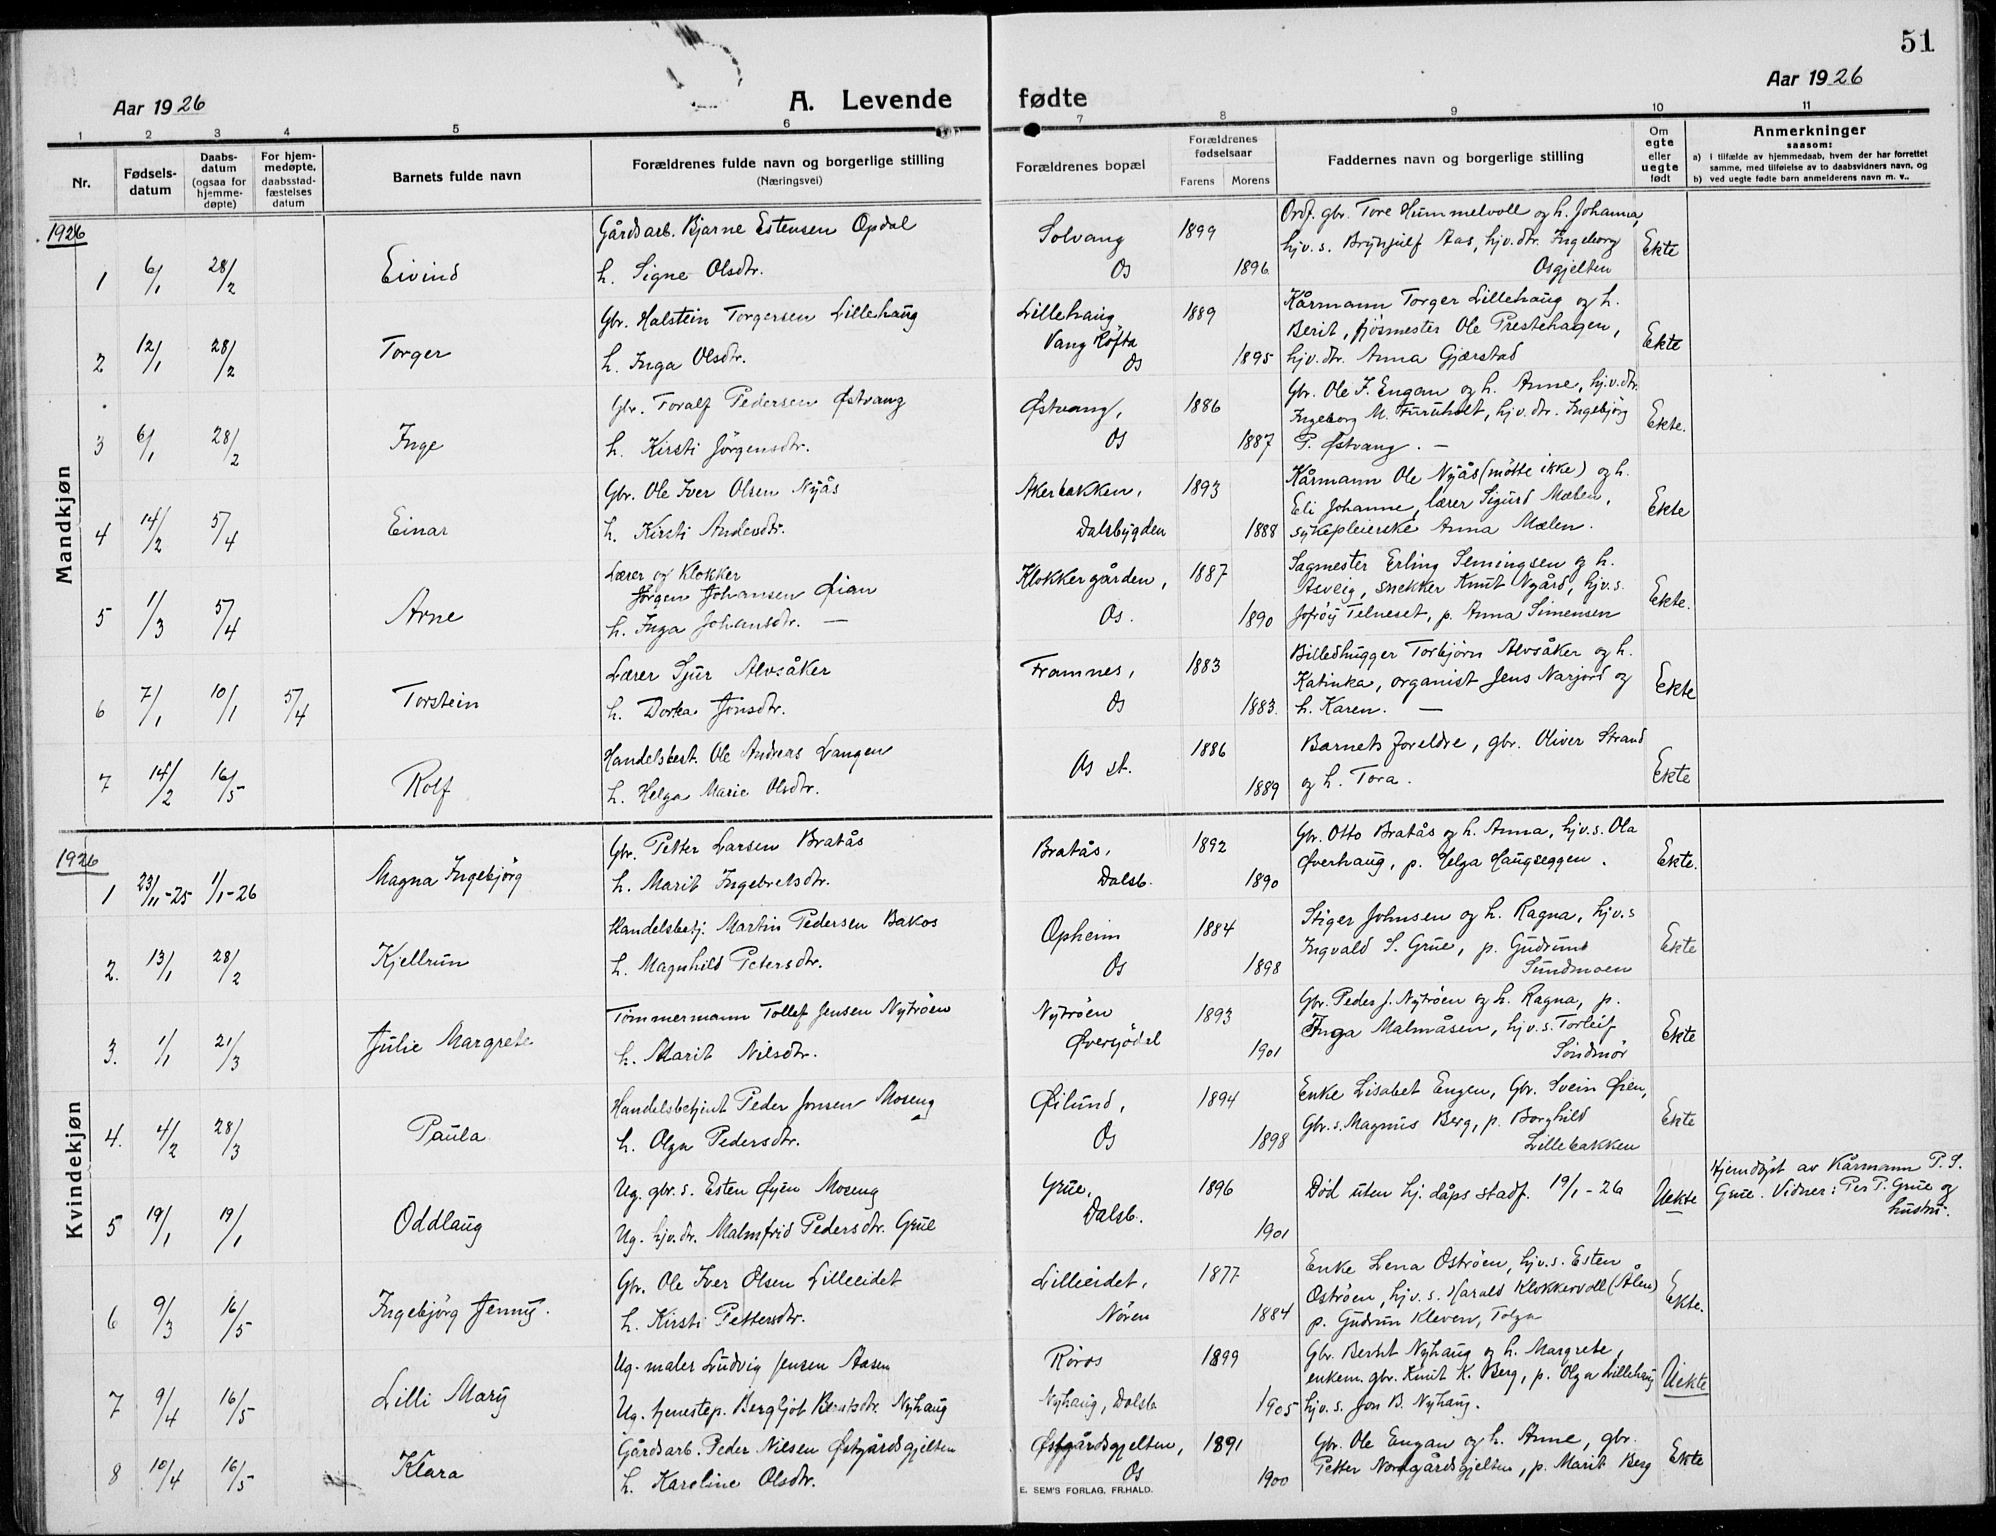 51
Aar 1926
A. Levende fødte
Aar 1926
1 2 3 4 5 6 7 8 9 10 11
Nr.
Fødsels-datum
Daabs-datum (ogsaa for hjemme-døpte)
For hjem-medøpte, daabsstad-fæstelses datum
Barnets fulde navn
Forældrenes fulde navn og borgerlige stilling
(Næringsvei)
Forældrenes bopæl
Forældrenes fødselsaar
Farens Morens
Faddernes navn og borgerlige stilling
Om egte eller uegte født
Anmerkninger
saasom:
a) i tilfælde av hjemmedaab, hvem der har forrettet
samme, med tilføielse av to daabsvidners navn, og
b) ved uegte fødte barn anmelderens navn m. v..
Mandkjøn
1926
Gårdsarb. Bjarne Estensen Opdal Solvang 1899 Ordf. gbr. Tore Hummelvoll og h. Johanna,
hjv.s. Brynjulf Aas, hjv.dtr. Ingeborg
1 6/1 28/2 Eivind h. Signe Olsdtr. Os 1896 Osgjelten Ekte
Gbr. Halstein Torgersen Lillehaug Lillehaug 1889 Kårmann Torger Lillehaug og h.
Vang Köfta Berit, fjösmester Ole Prestehagen,
2 12/1 28/2 Torger h. Inga Olsdtr. Os 1895 hjv.dtr. Anna Gjærstad Ekte
Gbr. Toralf Pedersen Østvang Østvang, 1886 Gbr. Ole J. Engan og h. Anne, hj.v.dtr.
Ingeborg M. Furuholt, hjv.dtr. Ingebjörg
3 6/1 28/2 Inge h. Kirsti Jörgensdtr. Os 1887 P. Østvang. — Ekte.
Gbr. Ole Iver Olsen Nyås Akerbakken, 1893 Kårmann Ole Nyås (mötte ikke) og h.
Eli Johanne, lærer Sigurd Mælen,
4 14/2 5/4 Einar h. Kirsti Andersdtr. Dalsbygden 1888 sykepleierske Anna Mælen. Ekte
Lærer og Klokker Klokkergården, 1887 Sagmester Erling Semingsen og h.
Jörgen Johansen Øian Åsveig, snekker Knut Nygård, hjv.s.
5 1/3 5/4 Arne h. Inga Johansdtr. — Os. 1890 Jofröy Telneset, p. Anna Simensen Ekte.
Lærer Sjur Alvsåker Framnes, 1883 Billedhugger Torbjörn Alvsåker og h.
Katinka, organist Jens Narjord og
6 7/1 10/1 5/4 Torstein h. Dorka Jonsdtr. Os 1883. h. Karen. — Ekte
Handelsbest. Ole Andreas Langen Os st. 1886 Barnets foreldre, gbr. Oliver Strand
7 14/2 16/5 Rolf h. Helga Marie Olsdtr. 1889 og h. Tora. Ekte
Kvindekjøn
1926
Gbr. Petter Larsen Bratås Bratås, 1892 Gbr. Otto Bratås og h. Anna, hjv.s. Ola
1 23/11-25 1/1-26 Magna Ingebjörg h. Marit Ingebretsdtr. Dalsb. 1890 Øverhaug, p. Helga Haugseggen. Ekte.
Handelsbetj. Martin Pedersen Bakos Opheim 1884 Stiger Johnsen og h. Ragna, hjv.s
Ingvald S. Grue, p. Gudrund
2. 13/1 28/2 Kjellrun h. Magnhild Petersdtr. Os 1898 Sundmoen Ekte
Tömmermann Tollef Jensen Nytröen Nytröen 1893 Gbr. Peder J. Nytröen og h. Ragna, p.
Inga Malmåsen, hjv.s. Torleif
3. 1/1 21/3 Julie Margrete h. Marit Nilsdtr. Øversjödal 1901 Söndmör Ekte
Handelsbetjent Peder Jonsen Moseng Øilund, 1894 Enke Lisabet Engen, Gbr. Svein Øien,
Gbr.s. Magnus Berg, p. Borghild
4. 4/2 28/3 Paula h. Olga Pedersdtr. Os 1898 Lillebakken Ekte
Ug. gbr.s. Esten Øyen Moseng Grue, 1896 Död uten hj. dåps stadf. 19/1-26 Uekte Hjemdöpt av Kårmann P. S.
Grue. Vidner: Per P. Grue og
5 19/1 19/1 Oddlaug Ug. hjv.dtr. Malmfrid Pedersdtr. Grue Dalsb. 1901 hustru.
Gbr. Ole Iver Olsen Lilleeidet Lilleeidet, 1877 Enke Lena Oströen, hjv.s. Esten
Oströen, hjv.s. Harald Klokkervoll (Ålen)
6 9/3 16/5 Ingebjörg Jenny. h. Kirsti Pettersdtr. Nören 1884 p. Gudrun Kleven, Tolga Ekte.
Ug. maler Ludvig Jensen Aasen Röros 1899 Gbr. Bernt Nyhaug og h. Margrete,
enkem. gbr. Knut K. Berg, p. Olga Lillehaug
7 9/4 16/5 Lilli Mary Ug. tjenestep. Bergljot Berntsdtr. Nyhaug Nyhaug, Dalsb. 1905 hjv.s. Jon B. Nyhaug. Uekte
Gårdsarb. Peder Nilsen Østgårdsgjelten Østgårdsgjelten, 1891 Gbr. Ole Engan og h. Anne, gbr.
8 10/4 16/5 Klara h. Karoline Olsdtr. Os 1900 Petter Nordgårdsgjelten, p. Marit Berg Ekte
E. SEM'S FORLAG, FR.HALD.